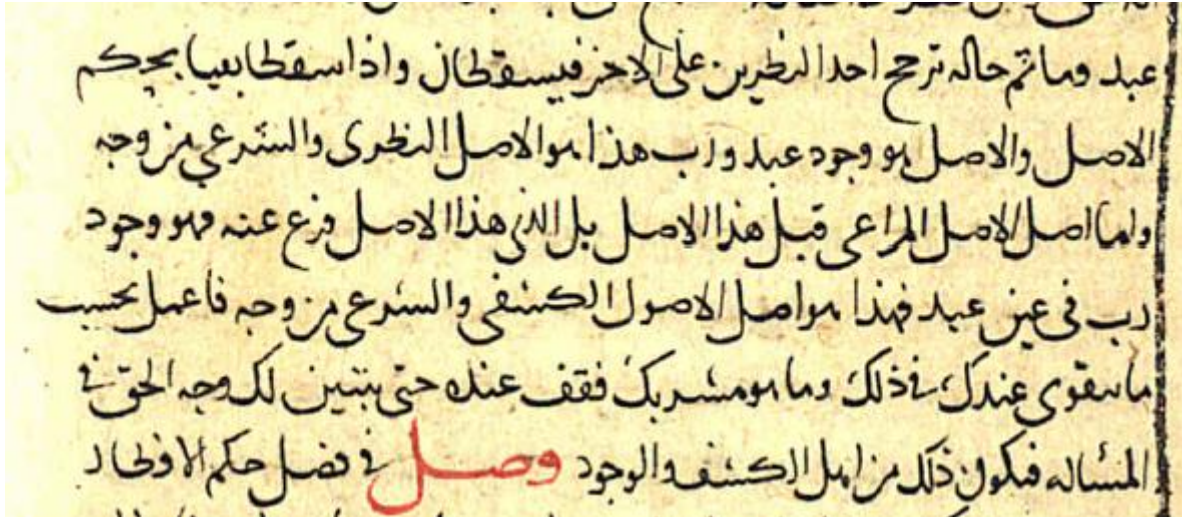 عبد وما ثم حاله ترجح احد النظرين على الاخر فيسقطان واذا سقطا بقيا بحكم
الاصل والاصل هو وجود عبد ورب هذا هو الاصل النظرى والشرعي من وجه
واما اصل الاصل المراعى قبل هذا الاصل بل الذى هذا الاصل فرع عنه فهو وجود
رب فى عين عبد فهذا هو اصل الاصول الكشفى والشرعى من وجه فاعمل بحسب
ما يتقوى عندك فى ذلك وما هو مشربك فقف عنده حتى يتبين لك وجه الحق فى
المساله فيكون ذلك من اهل الكشف والوجود وصل فى فصل حكم الافطار